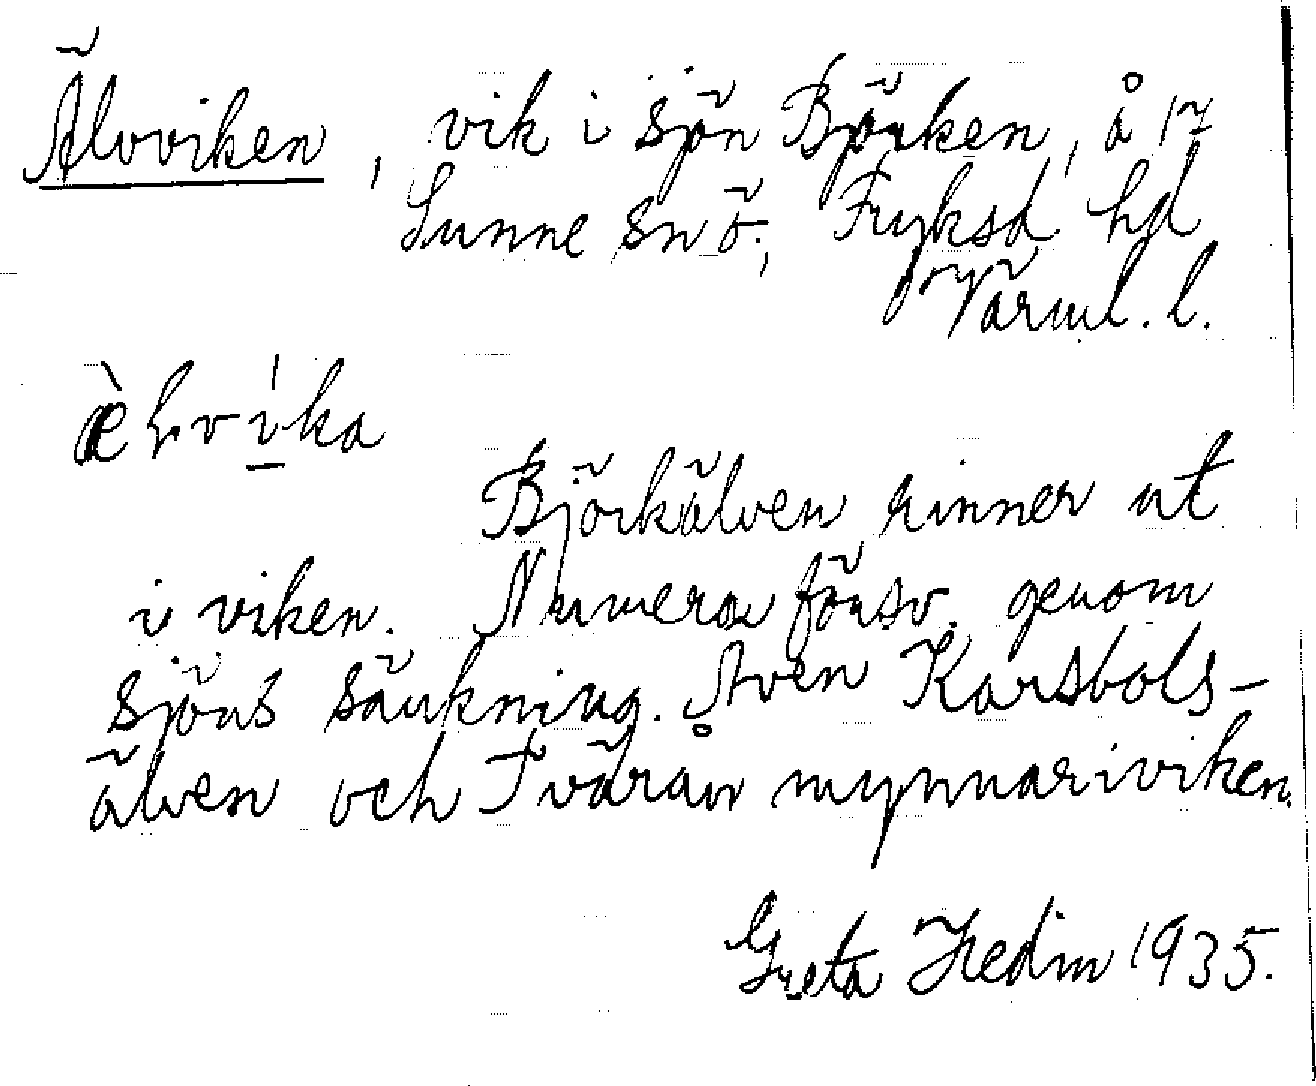 Älvviken, vik i sjön Björken, å 17
Sunne sn ö., Fryksd. hd
Värml. l.
æ̀lvíka
Björkälven rinner ut
i viken. Numera försv. genom
sjöns sänkning. Även Karsbols-
älven och Tvärån mynnar i viken.
Greta Hedin 1935.